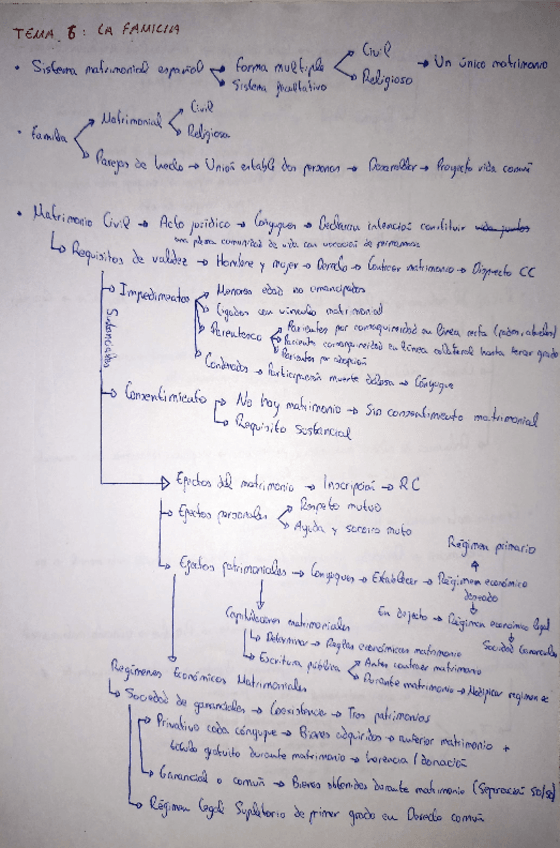 TEMA 6: LA FAMILIA
• Sistema matrimonial español → Forma multiple → Civil → Un único matrimonio
Religioso
→ Sistema facultativo
• Familia → Matrimonial → Civil
Religiosa
→ Parejas de hecho → Unión estable dos personas → Desarrollar → Proyecto vida común
• Matrimonio Civil → Acto jurídico → Conyugues → Declaran intención constituir vida juntos
una plena comunidad de vida con vocación de permanencia
→ Requisitos de validez → Hombre y mujer → Derecho → Contraer matrimonio → Dispuesto CC
Sustanciales
→ Impedimentos → Menores edad no emancipados
→ Ligados con vinculo matrimonial
→ Parentesco → Parientes por consanguinidad en linea recta (padres, abuelos)
→ Pariente consanguinidad en linea collateral hasta tercer grado
→ Parientes por adopción
→ Condenados → Participación muerte dolosa → Cónyugue
→ Consentimiento → No hay matrimonio → Sin consentimiento matrimonial
→ Requisito sustancial
→ Efectos del matrimonio → Inscripción → RC
→ Efectos personales → Respeto mutuo
→ Ayuda y socorro mutuo
Régimen primario
→ Efectos patrimoniales → Conyugues → Establecer → Régimen económico
deseado
Capitulaciones matrimoniales
En defecto → Régimen económico legal
→ Determinar → Reglas económicas matrimonio
Sociedad Gananciales
→ Escritura pública → Antes contraer matrimonio
→ Durante matrimonio → Modificar régimen ec
Regímenes Económicos Matrimoniales
→ Sociedad de gananciales → Coexistencia → Tres patrimonios
→ Privativo cada cónyugue → Bienes adquiridos → anterior matrimonio +
título gratuito durante matrimonio → herencia / donación
→ Ganancial o común → Bienes obtenidos durante matrimonio (Separación 50/50)
→ Régimen Legal Supletorio de primer grado en Derecho común